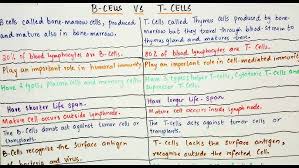 B-CELLS Vs T-CELLS
B cells called bone-marrow cells, produced
and mature also in bone-marrow.
T cells called Thymus cells produced by bone-
marrow but they travel through blood-stream to
thymus gland and mature here.
20% of blood lymphocytes are B-Cells.
80% of blood lymphocytes are T-Cells
Play an important role in humoral immunity
Play an important role in cell-mediated immunity
Have 2 types, Plasma Cells and memory cells
Have 3 types, helper T-Cells, Cytotoxic T-Cells and
Supressor T-Cells
Have shorter life span.
Have longer life-span.
Mature cell occurs outside lymphnode.
Mature cell occurs inside lymph node.
The B-Cells donot act against tumor cells or
transplants.
The T-Cells acts against tumor cells or
transplants.
B-Cells recognise the surface antigen
of bacteria and virus.
T-Cells lacks the surface antigen,
recognise outside the infected cells